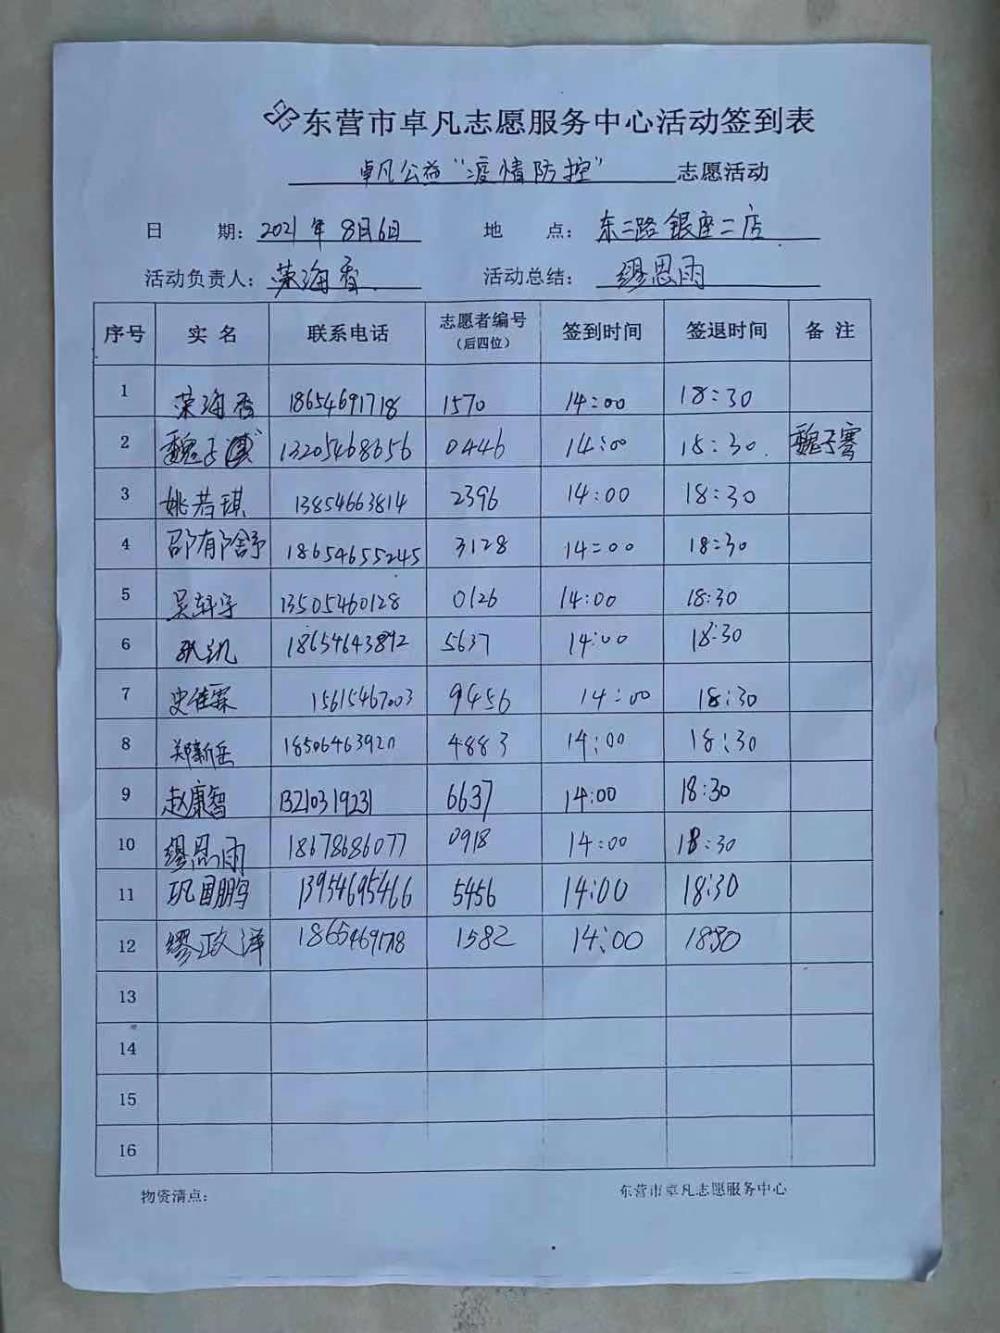 东营市卓凡志愿服务中心活动签到表
卓凡公益“疫情防控” 志愿活动
日 期: 2021年8月6日 地 点: 东二路银座二店
活动负责人: 荣海香 活动总结: 缪思雨
序号 实名 联系电话 志愿者编号(后四位) 签到时间 签退时间 备注
1 荣海香 18654691718 1570 14:00 18:30
2 魏子 13205468656 0446 14:00 18:30 魏子骞
3 姚若琪 13854663814 2396 14:00 18:30
4 邵郁舒 18654655245 3128 14:00 18:30
5 吴轩宇 13505460128 0126 14:00 18:30
6 18654643892 5637 14:00 18:30
7 史佳霖 15615467003 9456 14:00 18:30
8 郑新岳 18506463920 4883 14:00 18:30
9 赵康智 13210319231 6637 14:00 18:30
10 缪思雨 18678686077 0918 14:00 18:30
11 巩国鹏 13954695466 5456 14:00 18:30
12 缪政洋 1582 14:00 1830
13
14
15
16
物资清点: 东营市卓凡志愿服务中心